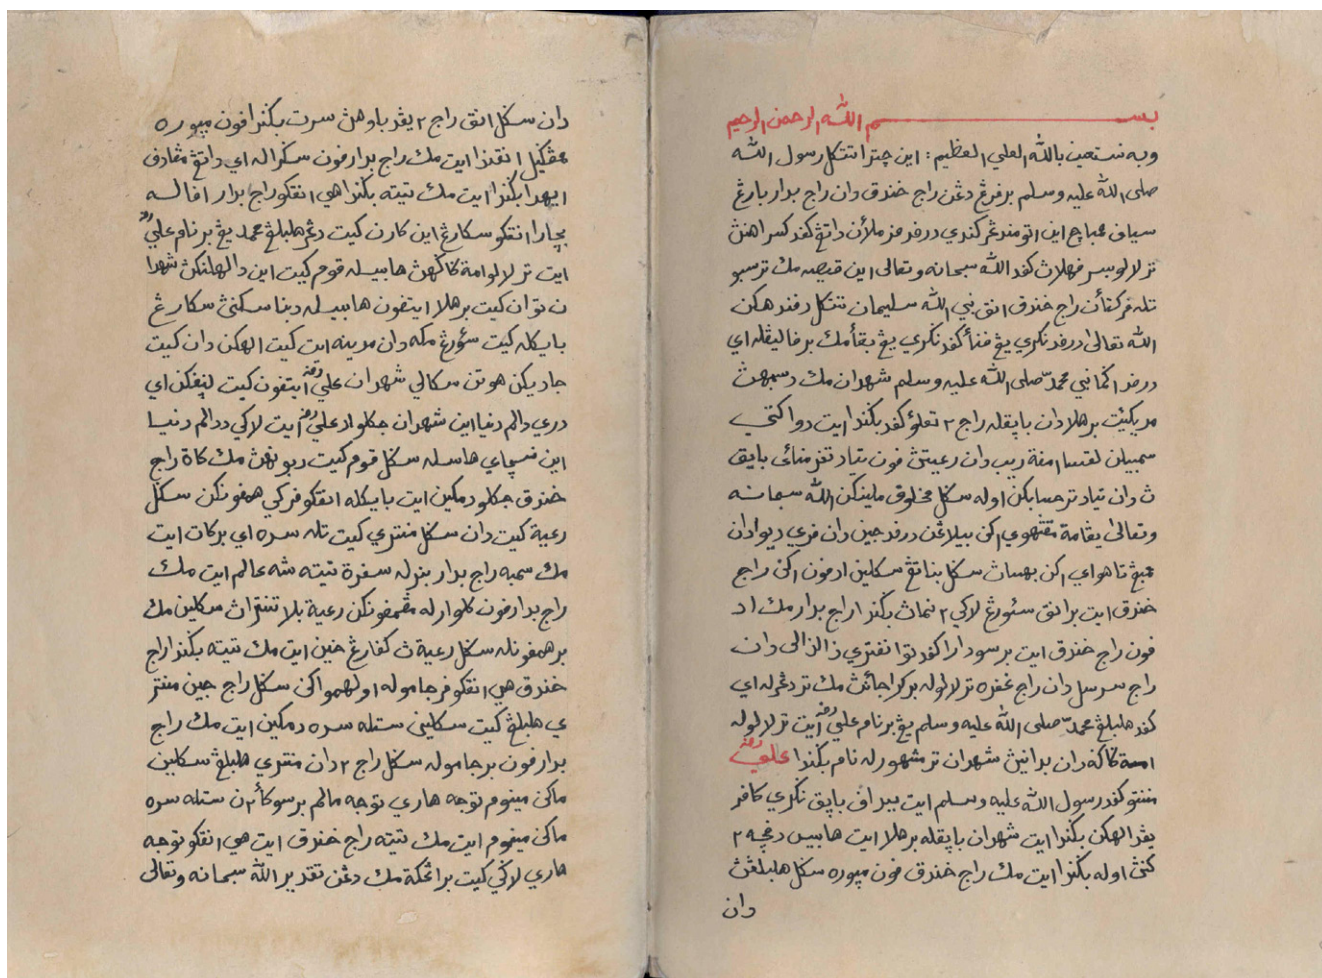 بسم الله الرحمن الرحيم
وبه نستعين بالله العلي العظيم : اين چترا تتكل رسول الله
صلى الله عليه وسلم برفرڠ دڠن راج خندق دان راج بدار بارڠ
سياف ممباچ اين اتو مندڠركندي درفد فرملأن داتڠ كفد كسراهنڽ
ترلالو بسر فهلاڽ كفد الله سبحانه وتعالى اين قيصه مك ترسبو
تله فركتأن راج خندق انق نبي الله سليمان تتكل دفندهكن
الله تعالى درفد نكري يڠ فنأ كفد نكري يڠ بقأ مك برفاليڠله اي
درفد اكام نبي محمد صلى الله عليه وسلم شهدان مك دسمبهڽ
بركيت برهلا دان باپقله راج ٢ تعلوٴ كفد بكندا ايت دوا كتي
سمبيلن لقسا امفة ريب دان رعيتڽ فون تياد ترفرمنائي باپق
ڽ دان تياد ترحسابكن اوله سكل مخلوق ملينكن الله سبحانه
وتعالى يڠامة مڠتهوي اكن بيلاڠن درفد جين دان فري ديو ادان
ممبڠ تاهو اي اكن بهساڽ سكل بناتڠ سكالين ادفون اكن راج
خندق ايت برانق سئورڠ لاكي ٢ نماڽ بكندا راج بدار مك اد
فون راج خندق ايت برسودارا كفد توانفتري ذالزالي دان
راج سرسل دان راج غفره ترلالوله بركراجائنڽ مك تردڠرله اي
كفد هلبلڠ محمد صلى الله عليه وسلم يڠ برنام علي رضه ايت ترلالوله
امة كاكه دان برانيڽ شهدان ترمشهورله نام بكندا علي رضه
منتو كفد رسول الله عليه وسلم ايت ببراف باپق نكري كافر
يڠد الهكن بكندا ايت شهدان باپقله برهلا ايت هابيس دڠچه ٢
كنڽ اوله بكندا ايت مك راج خندق فون مپوره سكل هلبلڠڽ
دان
دان سكل انق راج ٢ يڠد باوهڽ سرت بكندا فون مپوره
مڠݢيل انقندا ايت مك راج بدار فون سكراله اي داتڠ مڠادف
ايهدا بكندا ايت مك تيته بكندا هي انقكو راج بدار افاله
بچارا انقكو سكارڠ اين كارن كيت دڠر هلبلڠ محمد يڠ برنام علي رضه
ايت ترلالو امة كاكهڽ هابيسله قوم كيت اين دالهكنڽ شهدا
ن توان كيت برهلا ايتفون هابيسله دبناسكنڽ سكارڠ
باݢيكله كيت سئورڠ مكه دان مدينه ايت كيت الهكن دان كيت
جاديكن هوتن سكالي شهدان علي رضه ايتفون كيت لپفكن اي
دري دالم دنيا اين شهدان جكلو اد علي رضه ايت لاكي ددالم دنيا
اين نسچاي هابسله سكل قوم كيت دبونهڽ مك كاة راج
خندق جكلو دمكين ايت باݢيكله انقكو فركي همفونكن سكل
رعية كيت دان سكل منتري كيت تله سره اي بركات ايت
مك سمبه راج بدار بنرله سفرة تيته شه عالم ايت مك
راج بدار فون كلوارله مڠمفونكن رعية بلا تنتراڽ سكالين مك
برهمفونله سكل رعيةڽ كفارڠ خنين ايت مك تيته بكندا راج
خندق هي انقكو فرجاموله اولهمو اكن سكل راج جين منتر
ي هلبلڠ كيت سكاليني ستله سره دمكين ايت مك راج
بدار فون برجاموله سكل راج ٢ دان منتري هلبلڠ سكالين
ماكن مينوم توجه هاري توجه مالم برسوكأ٢ن ستله سره
ماكن مينوم ايت مك تيته راج خندق ايت هي انقكو توجه
هاري لاكي كيت براڠكة مك دڠن تقدير الله سبحانه وتعالى